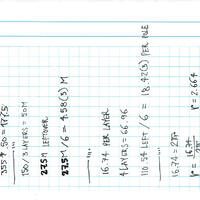 355 ÷ .50 = 177.5
150 / 3 LAYERS = 50M
27.5M LEFTOVER
27.5M / 6 = 4.58(3) M
16.74 PER LAYER
4 LAYERS = 66.96
110.54 LEFT / 6 = 18.42(3) PER POLE
16.74 = 2πr
r = 16.74 / 2π
r = 2.664